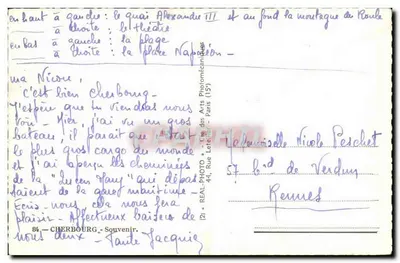 en haut à gauche : le quai Alexandre III et au fond la montagne du Roule
à droite : le théâtre
en bas à gauche : la plage
à droite : la place Napoléon -
ma Nicole,
C'est bien Cherbourg -
J'espère que tu viendras nous
voir - Hier, j'ai vu un gros
bateau, il paraît que c'est
le plus gros cargo du monde
et j'ai aperçu des cheminées
de la "Queen Mary" qui dépas
saient de la gare maritime -
Ecris-nous, cela nous fera
plaisir - Affectueux baisers de
nous deux - Tante Jacquie
84 - CHERBOURG - Souvenir.
REAL-PHOTO
44, Rue - Paris (15e)
Mademoiselle Nicole Peschet
57 bd de Verdun
Rennes